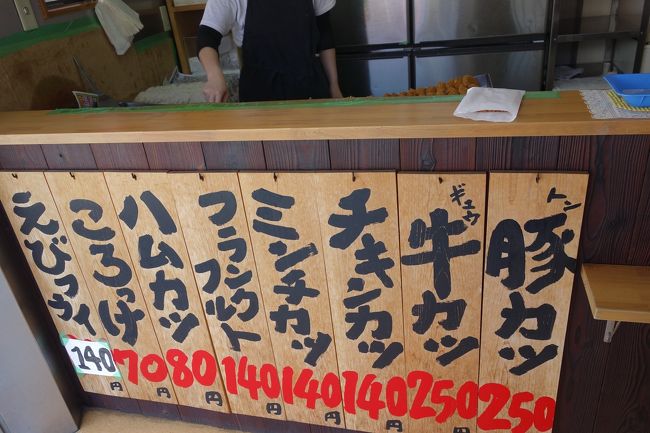 トン
豚カツ
250円
ギュウ
牛カツ
250円
チキンカツ
140円
ミンチカツ
140円
フランクフルト
140円
ハムカツ
80円
ころっけ
70円
えびフライ
140円